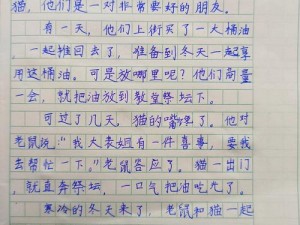 猫，他们是一对非常要好的朋友。
有一天，他们上街买了一大桶油
，一起推回去了，准备到冬天一起享
用这桶油。可是放哪里呢？他们商量
一会，就把油放到教堂祭坛下。
可过了几天，猫的嘴馋了。他对
老鼠说：“我大表姐有一件喜事，要我
去帮忙一下。”老鼠答应了。猫一出门
，就直奔祭坛，一口气把油吃光了。
寒冷的冬天来了，老鼠和猫一起